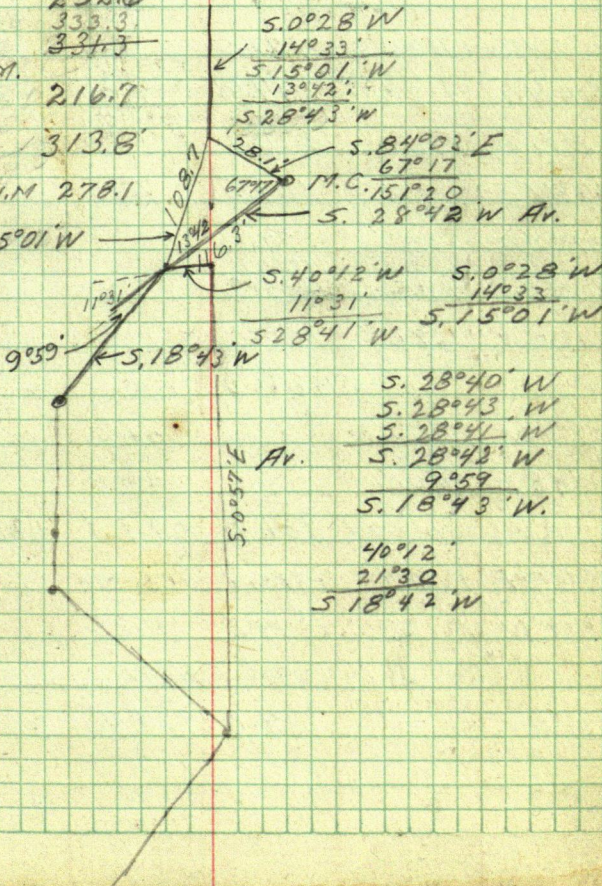 333.3
331.3
M.
216.7
313.8
.M 278.1
S.0°28'W
14°33'
S15°01'W
13°42'
S28°43'W
S.84°03'E
67°17
151°20
28.1
67°17
M.C.
108.7
S. 28°42'W Av.
13°42'
116.3'
5°01'W
S.40°12'W
11°31'
S28°41'W
S.0°28'W
14°33
S.15°01'W
11°31'
9°59'
S,18°43'W
S. 28°40' W
S.28°43 W
S.28°41 W
Av. S.28°42'W
9°59
S.18°43'W.
S.0°57'E
40°12'
21°30
S18°42'W